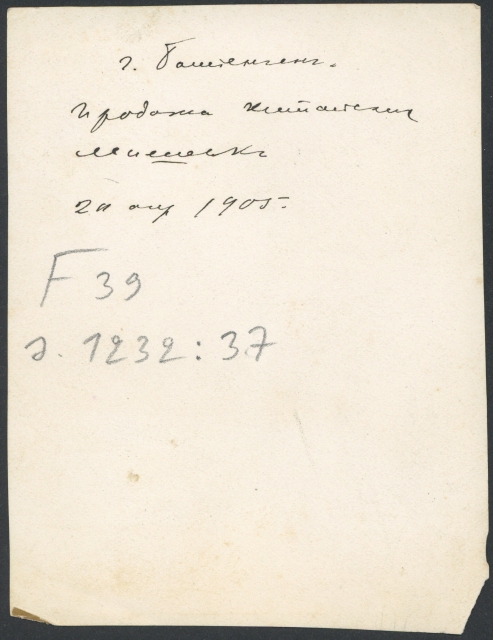 г. Баштенгенг.
Продажа китайских
Мишекъ
20 апр 1905.
F 39
д. 1232:37